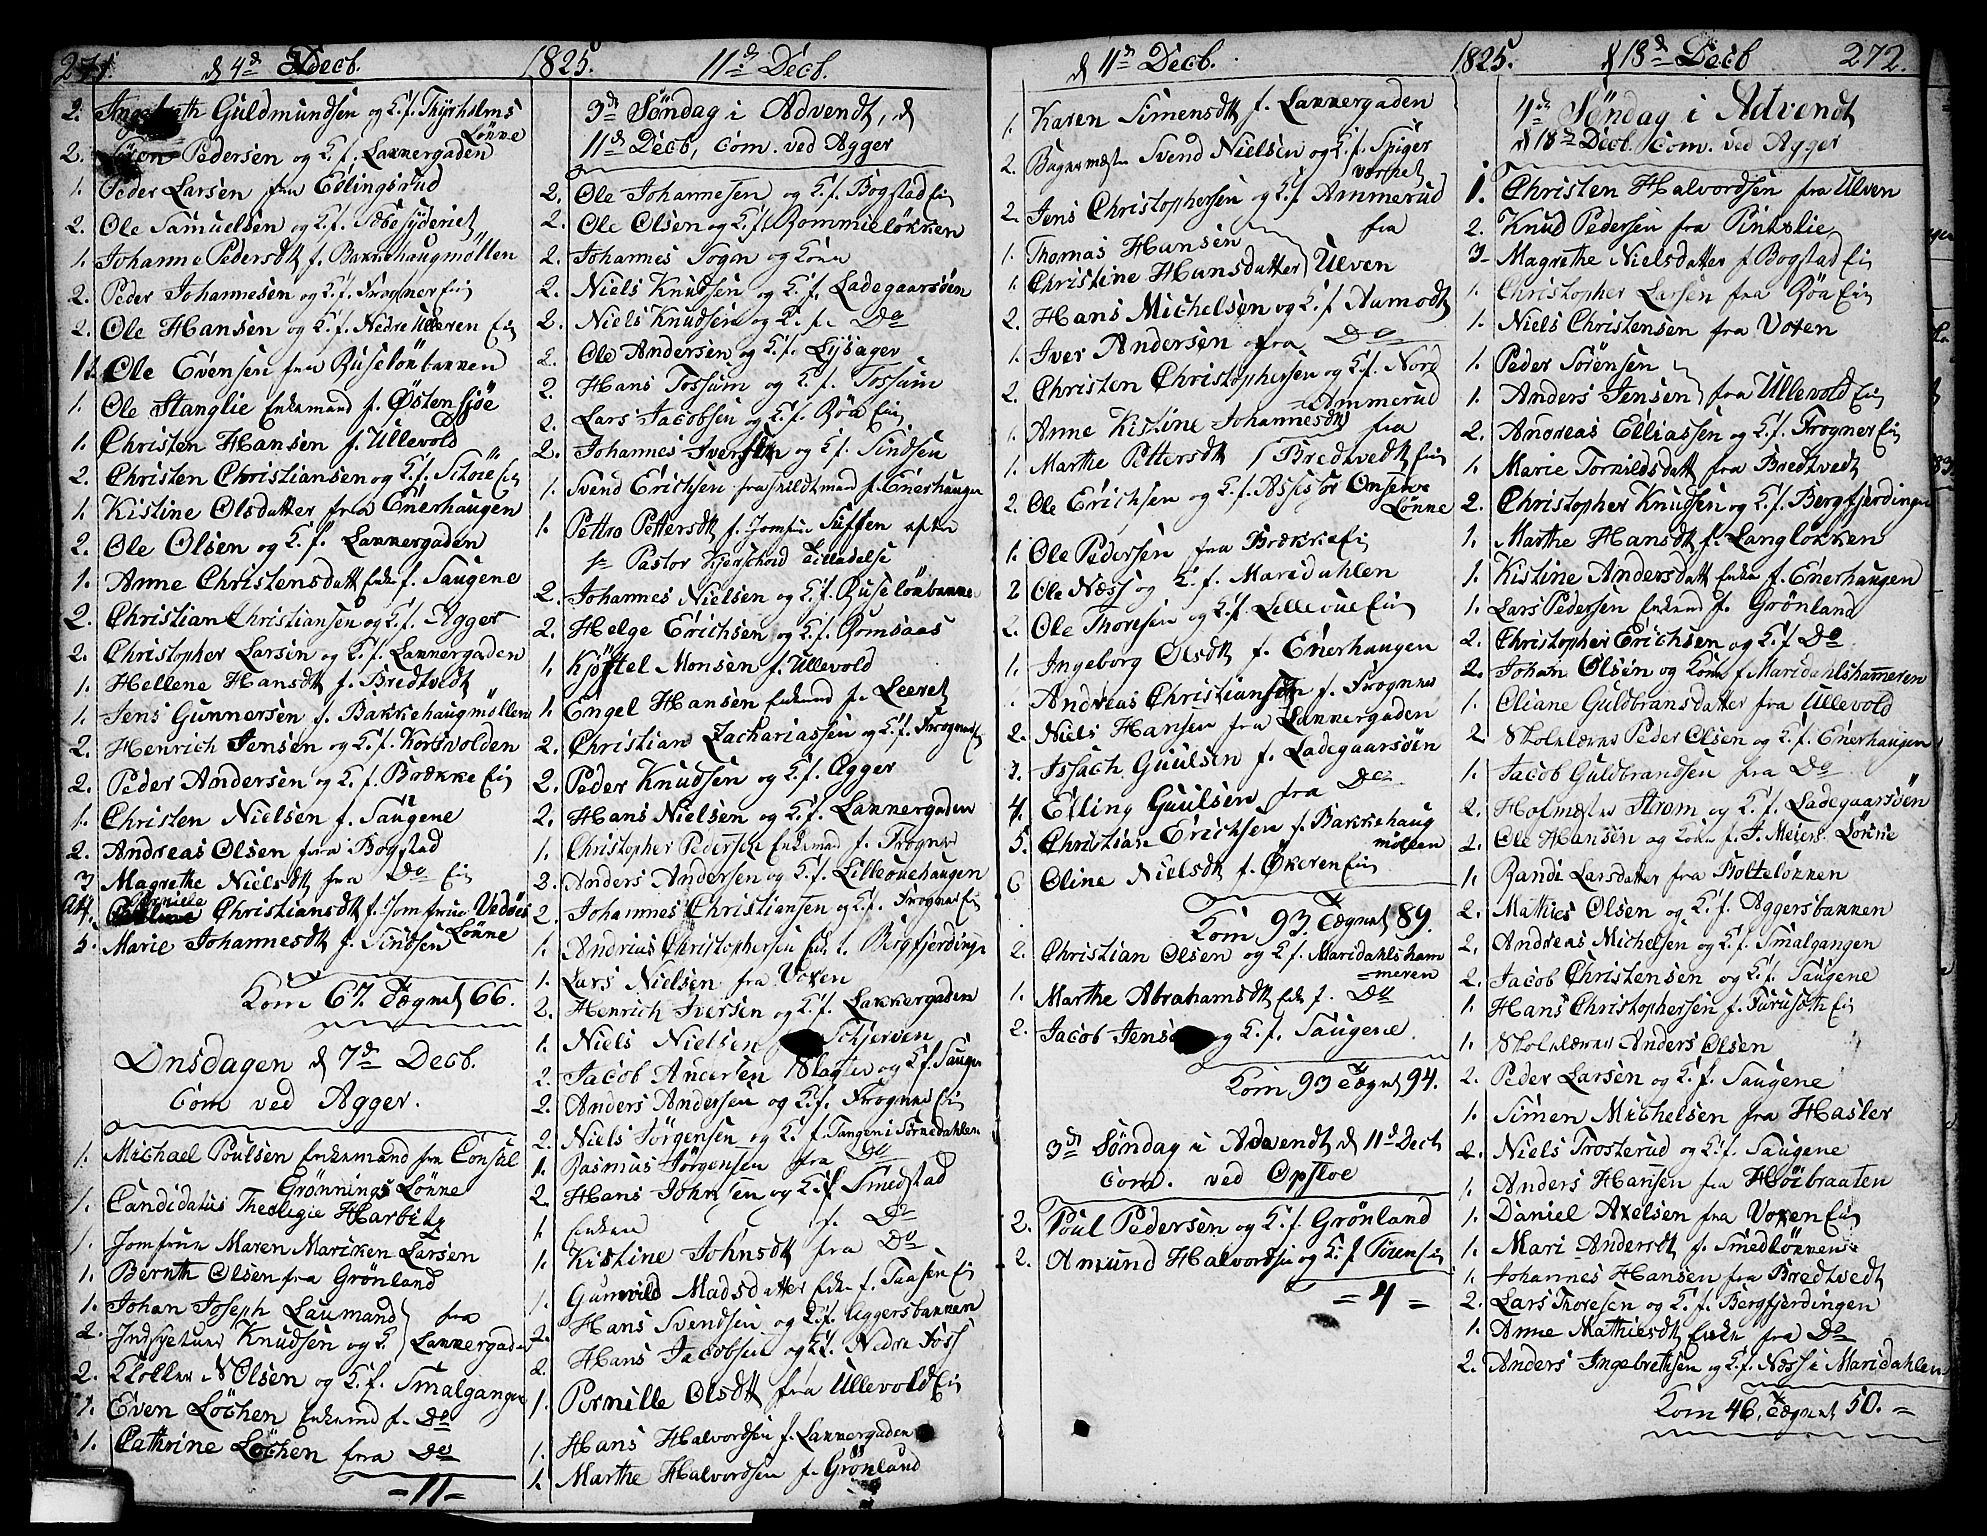 271. d 4d Decb. 1825. 11d Decb.
2. Ingebreth Guldmundsen og K. f. Thyrholms
Lønne
2. Sören Pedersen og K. f. Lakkergaden
1. Peder Larsen fra Ellingsrud
2. Ole Samuelsen og K. f.
1. Johanne Pedersdtt f. Bakkehaugmøllen
2. Peder Johannesen og K. f. Frogner Ei
2. Ole Hansen og K. f. Nedre Ulleren Ei
1. Ole Evensen fra Ruseløkbakken
1. Ole Stanglie Enkemand f. Østensjöe
1. Christen Hansen f. Ullevold
2. Christen Christiansen og K. f. Ei
1. Kistine Olsdatter fra Enerhaugen
2. Ole Olsen og K. f. Lakkergaden
1. Anne Christensdatt Enke f. Saugene
2. Christian Christiansen og K. f. Agger
2. Christopher Larsen og K. f. Lakkergaden
1. Hellene Hansdtt f. Bredtvedt
1. Jens Gunnersen f. Bakkehaugmøllen
2. Henrich Jensen og K. f. Korsvolden
2. Peder Andersen og K. f. Brække Ei
1. Christen Nielsen f. Saugene
2. Andreas Olsen fra Bogstad
3 Magrethe Nielsdtt fra Do Ei
4. Pernille Christiansdtt f. Jomfrue
Lønne
5. Marie Johannesdtt f. Sindsen
Kom 67. Tegnet 66.
Onsdagen d 7d Decb.
Com ved Agger.
1. Michael Poulsen Enkemand fra Consul
Grønnings Lønne
1. Candidatus Theologie Harbitz
1. Jomfrue Maren Mariken Larsen
1. Bernth Olsen fra Grönland
1. Johan Joseph Laumand fra
2. Knudsen og K Lakkergaden
2. N Olsen og K. f. Smalgangen
1. Even Löchen Enkemd f. Do
1. Cathrine Löchen fra Do
=11=
3d Søndag i Advendt, d
11d Decb, Com. ved Agger
2. Ole Johannesen og K. f. Bogstad Ei
2. Ole Olsen og K. f. Rommieløkken
2. Johannes Sogn og Kone
2. Niels Knudsen og K. f. Ladegaarsöen
2. Niels Knudsen og K. f. Do
2. Ole Andersen og K. f. Lysager
2. Hans Tossum og K. f. Tossum
2. Lars Jacobsen og K. f. Röa Ei
2. Johannes Iversen og K. f. Sindsen
1. Svend Erichsen fraskildtmand f. Enerhaugen
1. Pettro Pettersdtt f. Jomfru efter
Pastor Kjerschord Tilladelse
2. Johannes Nielsen og K. f. Ruseløkbakken
2. Helge Erichsen og K. f. Romsaas
1. Kjöstel Monsen f. Ullevold
1. Engel Hansen Enkemd f. Leeret
2. Christian Zachariassen og K. f. Frogner Ei
2. Peder Knudsen og K. f. Agger
2. Hans Nielsen og K. f. Lakkergaden
1. Christopher Pedersen Enkemd f. Frogner
2. Anders Andersen og K. f. Lillouehaugen
2. Johannes Christiansen og K. f. Frogner Ei
1. Andrius Christophersen Enk. f. Bergfjerdinge
1. Lars Nielsen fra Voxen
2. Henrich Iversen og K. f. Lakkergaden
1. Niels Nielsen f. Schjerven
2. Jacob Andersen Slagter og K. f. Saugen
2. Anders Andersen og K. f. Frogner Ei
2. Niels Jörgensen og K. f. Tangen i Sörkedahlen
1. Rasmus Jörgensen fra Do
2. Hans Johnsen og K. f. Smedstad
1 Enken f. Do
1. Kistine Johnsdtt fra Do
1. Gunvild Madsdatter Enke f. Taasen Ei
2. Hans Svendsen og K. f. Aggersbakken
2. Hans Jacobsen og K. f. Nedre Foss
1. Pernille Olsdtt fra Ullevold Ei
1. Hans Halvordsen f. Lakkergaden
1. Marthe Halvordsen f. Grönland
d 11d Decb. 1825. d 18d Decb 272.
1. Karen Simensdtt f. Lakkergaden
2. Svend Nielsen og K. f. Spiger
værket
2. Jens Christophersen og K. f. Ammerud
1. Thomas Hansen fra
1. Christine Hansdatter Ulven
2. Hans Michelsen og K. f. Aamodt
1. Iver Andersen fra Do
2. Christen Christophersen og K. f. Nord
=Ammerud
1. Anne Kistine Johannesdtt fra
1. Marthe Pettersdtt Bredtvedt Ei
2. Ole Erichsen og K. f. Assessor
Lønne
1. Ole Pedersen fra Brække Ei
2 Ole Næss og K. f. Maridahlen
2. Ole Thoresen og K. f. Lillevue Ei
1. Ingeborg Olsdtt f. Enerhaugen
1. Andreas Christiansen f. Frogner
2. Niels Hansen fra Lakkergaden
3. Issach Guulsen f. Ladegaarsöen
4. Elling Guulsen fra Do
5. Christian Erichsen f. Bakkehaug
møllen
6 Oline Nielsdtt f. Økeren Ei
Kom 93. Tegnet 89.
2. Christian Olsen og K. f. Maridahlsham
=meren
1. Marthe Abrahamsdtt Enk f. Do
2. Jacob Jensen og K. f. Saugene
Kom 93 Tegnet 94.
3d Søndag i Advendt d 11d Decb
Com. ved Opsloe
2. Poul Pedersen og K. f. Grönland
2. Amund Halvordsen og K. f. Ei
=4=
4d Søndag i Advendt
d 18d Decb. Com. ved Agger
1. Christen Halvordsen fra Ulven
2. Knud Pedersen fra
3 Magrethe Nielsdatter f Bogstad Ei
1. Christopher Larsen fra Röa Ei
1. Niels Christensen fra Voxen
1. Peder Sörensen
1. Anders Jensen fra Ullevold Ei
2. Andreas Elliassen og K. f. Frogner Ei
1. Marie Tornildsdatt fra Bredtvedt
2. Christopher Knudsen og K. f. Bergfjerdingen
1. Marthe Hansdtt f. Langløkken
1. Kistine Andersdatt Enke f. Enerhaugen
1. Lars Pedersen Enkemd f. Grönland
2. Christopher Erichsen og K. f. Do
2. Johan Olsen og Kone f. Maridahlshammeren
1. Oliane Guldbransdatter fra Ullevold
2. Skolelærer Peder Olsen og K. f. Enerhaugen
1. Jacob Guldbrandsen fra Do
2. Hofmester Strøm og K. f. Ladegaarsöen
2. Ole Hansen og Kone f. J. Meiers Lökke
1. Randi Larsdatter fra Bolteløkken
2. Mathies Olsen og K. f. Aggersbakken
2. Andreas Michelsen og K. f. Smalgangen
2. Jacob Christensen og K. f. Saugene
1. Hans Christophersen f. Furuseth Ei
1. Skolelærer Anders Olsen
2. Peder Larsen og K. f. Saugene
1. Simen Michelsen fra Hasler
2. Niels Trosterud og K. f. Saugene
1. Anders Hansen fra Höibraaten
1. Daniel Axelsen fra Voxen Ei
1. Mari Andersdt f. Smedløkken
1. Johannes Hansen fra Bredtvedt
2. Lars Thoresen og K. f. Bergfjerdingen
1. Anne Mathiesdtt Enke fra Do
2. Anders Ingebrethsen og K. f. Næss i Maridahlen
Kom 46, Tegnet 50.=